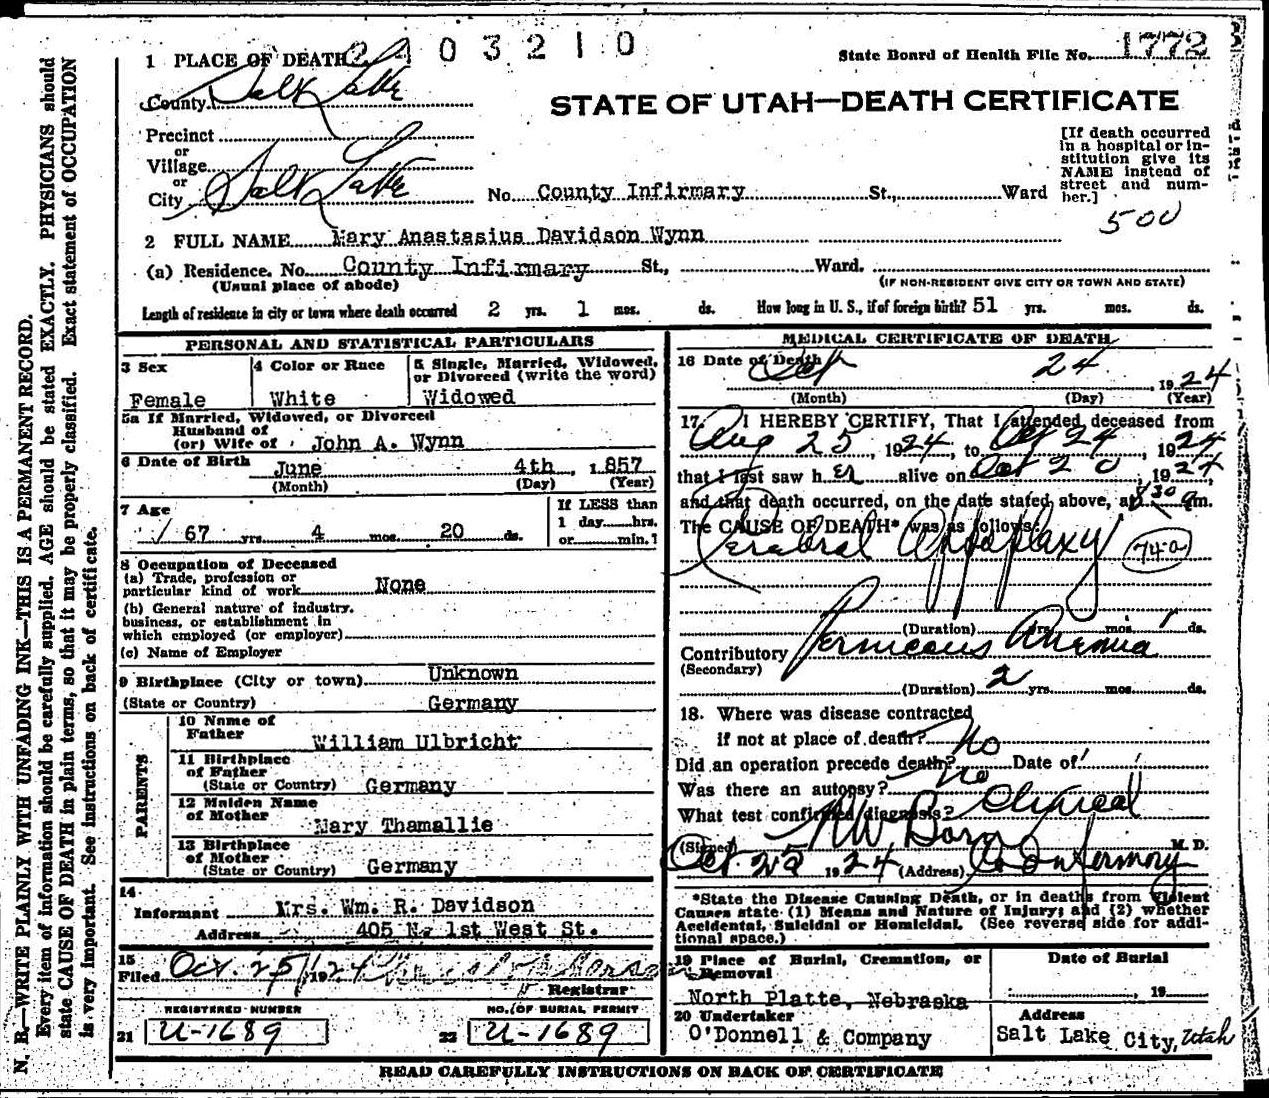 1 PLACE OF DEATH 2403210 State Board of Health File No. 1772
County Salt Lake
STATE OF UTAH—DEATH CERTIFICATE
Precinct
or
Village
or
City Salt Lake No. County Infirmary St., Ward
[If death occurred
in a hospital or in-
stitution give its
NAME instead of
street and num-
ber.]
500
2 FULL NAME Mary Anastasius Davidson Wynn
(a) Residence. No. County Infirmary St., Ward.
(Usual place of abode) (IF NON-RESIDENT GIVE CITY OR TOWN AND STATE)
Length of residence in city or town where death occurred 2 yrs. 1 mos. ds. How long in U. S., if of foreign birth? 51 yrs. mos. ds.
PERSONAL AND STATISTICAL PARTICULARS
3 Sex
Female
4 Color or Race
White
5 Single, Married, Widowed,
or Divorced (write the word)
Widowed
5a If Married, Widowed, or Divorced
Husband of
(or) Wife of John A. Wynn
6 Date of Birth June 4th, 1857
(Month) (Day) (Year)
7 Age
67 yrs. 4 mos. 20 ds.
If LESS than
1 day hrs.
or min.?
8 Occupation of Deceased
(a) Trade, profession or
particular kind of work None
(b) General nature of industry.
business, or establishment in
which employed (or employer)
(c) Name of Employer
9 Birthplace (City or town) Unknown
(State or Country) Germany
PARENTS
10 Name of
Father William Ulbricht
11 Birthplace
of Father
(State or Country) Germany
12 Maiden Name
of Mother Mary Thamallie
13 Birthplace
of Mother
(State or Country) Germany
14
Informant Mrs. Wm. R. Davidson
Address 405 N. 1st West St.
15
Filed Oct. 25, 1924
Registrar
REGISTERED NUMBER
21 U-1689
NO. OF BURIAL PERMIT
22 U-1689
MEDICAL CERTIFICATE OF DEATH
16 Date of Death Oct 24, 1924
(Month) (Day) (Year)
17. I HEREBY CERTIFY, That I attended deceased from
Aug 25, 1924, to Oct 24, 1924
that I last saw her alive on Oct 20, 1924
and that death occurred, on the date stated above, at 8 30 a.m.
The CAUSE OF DEATH* was as follows:
Cerebral Apoplaxy 74a
(Duration) yrs. mos. 1 ds.
Contributory Perniceous Anemia
(Secondary)
(Duration) 2 yrs. mos. ds.
18. Where was disease contracted
if not at place of death?
Did an operation precede death? No Date of
Was there an autopsy? No
What test confirmed diagnosis? Clinical
(Signed) M. D.
Oct 25 1924 (Address) Co Infermory
*State the Disease Causing Death, or in deaths from Violent
Causes state (1) Means and Nature of Injury; and (2) whether
Accidental, Suicidal or Homicidal. (See reverse side for addi-
tional space.)
19 Place of Burial, Cremation, or
Removal
North Platte, Nebraska
Date of Burial
, 19
20 Undertaker
O'Donnell & Company
Address
Salt Lake City, Utah
READ CAREFULLY INSTRUCTIONS ON BACK OF CERTIFICATE
N. B.—WRITE PLAINLY WITH UNFADING INK—THIS IS A PERMANENT RECORD.
Every item of information should be carefully supplied. AGE should be stated EXACTLY. PHYSICIANS should
state CAUSE OF DEATH in plain terms, so that it may be properly classified. Exact statement of OCCUPATION
is very important. See instructions on back of certificate.